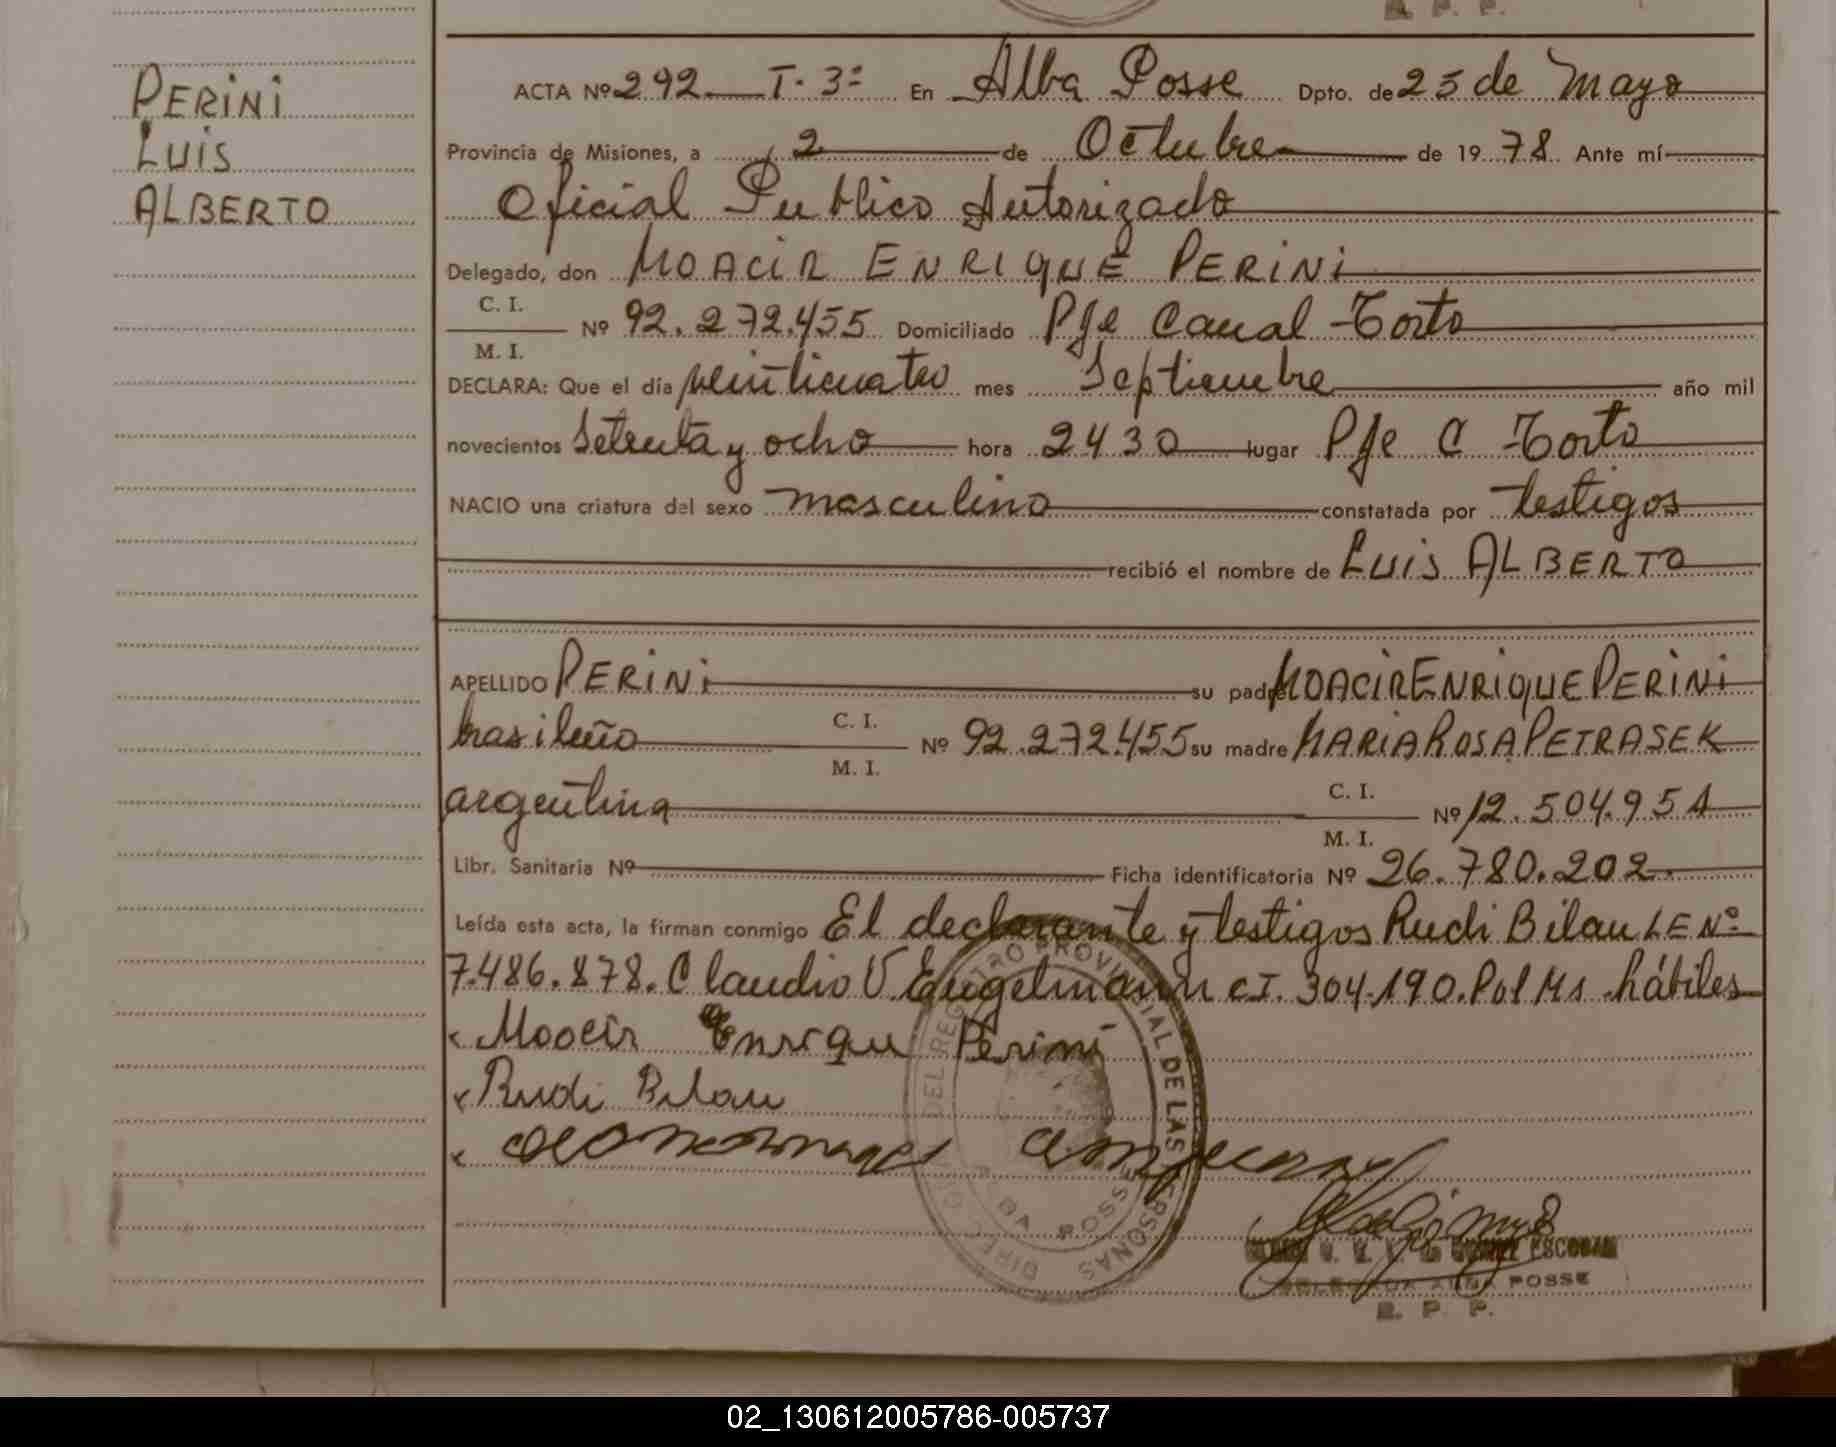 E. P. P.
PERINI
LUIS
ALBERTO
ACTA Nº 292 T. 3º En Alba Posse Dpto. de 25 de Mayo
Provincia de Misiones, a 2 de Octubre de 1978 Ante mí
Oficial Publico Autorizado
Delegado, don MOACIR ENRIQUE PERINI
C. I.
M. I.
Nº 92.272.455 Domiciliado Pje Canal Torto
DECLARA: Que el día veinticuatro mes Septiembre año mil
novecientos Setenta y ocho hora 24 30 lugar Pje C Torto
NACIO una criatura del sexo masculino constatada por testigos
recibió el nombre de LUIS ALBERTO
APELLIDO PERINI su padre MOACIR ENRIQUE PERINI
brasileño C. I. M. I. Nº 92.272.455 su madre MARIA ROSA PETRASEK
argentina C. I. M. I. Nº 12.504.951
Libr. Sanitaria Nº Ficha identificatoria Nº 26.780.202.
Leída esta acta, la firman conmigo El declarante y testigos Rudi Bilau LE Nº
7.486.878. Claudio V. Engelmann C.I. 304.190. Pol Ms. hábiles
Moacir Enrique Perini
Rudi Bilau
DIREC. G DEL REGISTRO PROVINCIAL DE LAS PERSONAS
ALBA POSSE
ESCOBAR
DELEGADA ALBA POSSE
E. P. P.
02_130612005786-005737